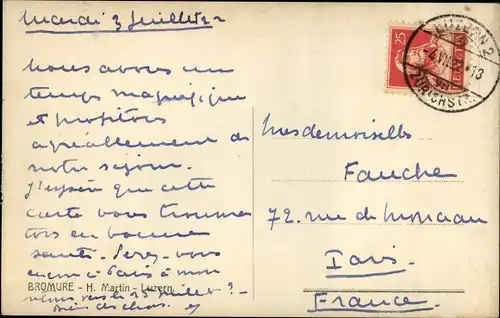 Mardi 3 Juillet
Nous avons un
temps magnifique
et profitons
agréablement de
notre séjour.
J'espère que cette
carte vous trouvera
en bonne
santé. Serez-vous
encore à Paris à mon
vers le 15 Juillet ?
BROMURE - H. Martin - Luzern
25
LUZERN 2
ZÜRICHSTR.
Mesdemoiselles
Fauche
72. rue de Monceau
Paris
France